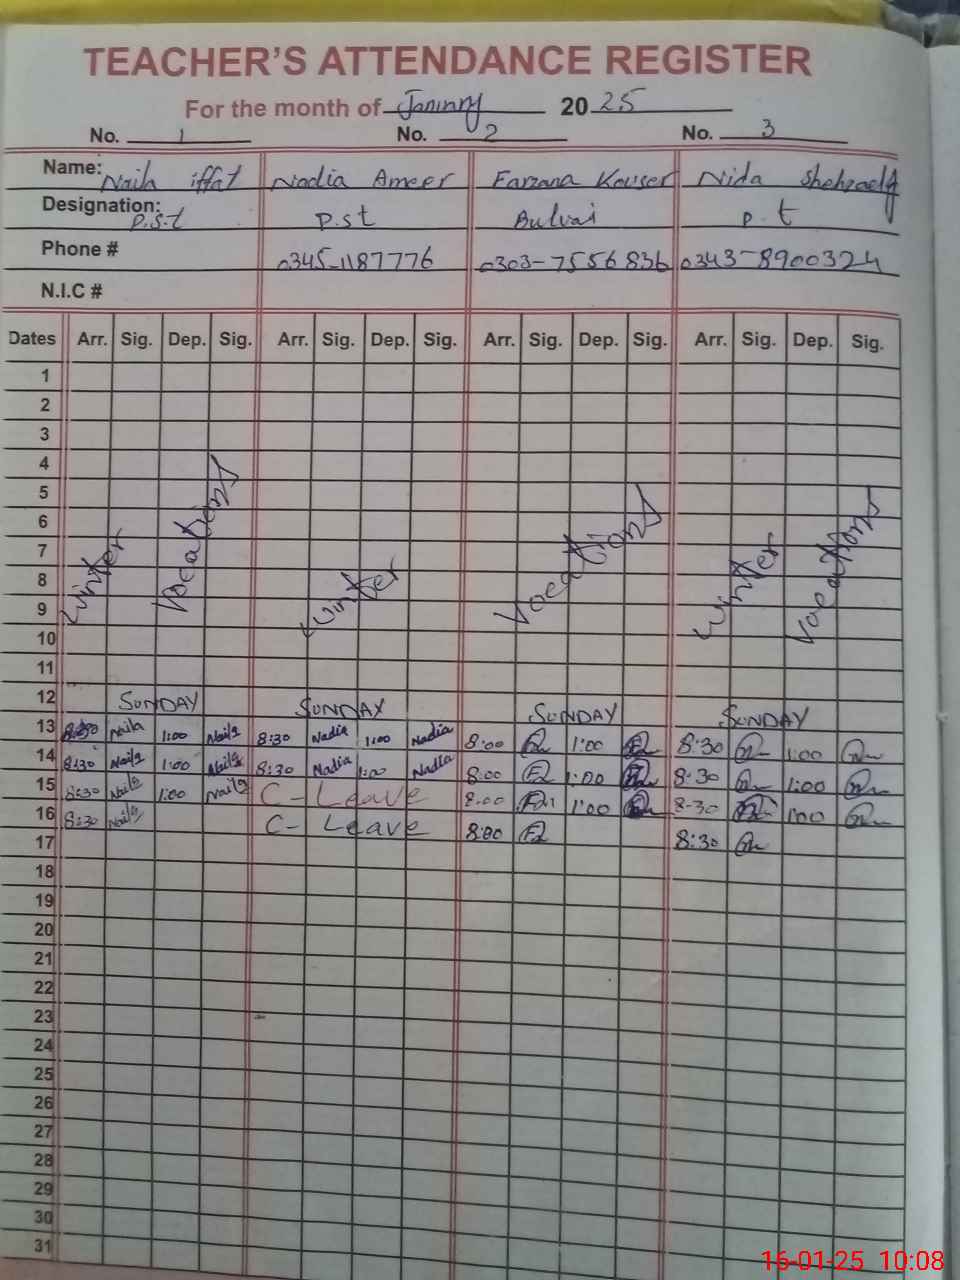 TEACHER'S ATTENDANCE REGISTER
For the month of Janinry 20 25
No. 1 No. 2 No. 3
Name: Naila iffat Nadia Ameer Farzana Kouser Nida Shehzadi
Designation: P.S.t P.st Bulvai P.t
Phone # 0345-1187776 0303-7556836 0343-8900324
N.I.C #
Dates Arr. Sig. Dep. Sig. Arr. Sig. Dep. Sig. Arr. Sig. Dep. Sig. Arr. Sig. Dep. Sig.
1
2
3
4
5
6
7
8
9
10
11
Winter Vocations Winter Vocations Winter Vocations
12 SUNDAY SUNDAY SUNDAY SUNDAY
13 8:30 Naila 1:00 Naila 8:30 Nadia 1:00 Nadia 8:00 1:00 8:30 1:00
14 8:30 Naila 1:00 Naila 8:30 Nadia 1:00 Nadia 8:00 1:00 8:30 1:00
15 8:30 Naila 1:00 Naila C- Leave 8:00 1:00 8-30 1:00
16 8:30 Naila C- Leave 8:00 8:30
17
18
19
20
21
22
23
24
25
26
27
28
29
30
31
16-01-25 10:08